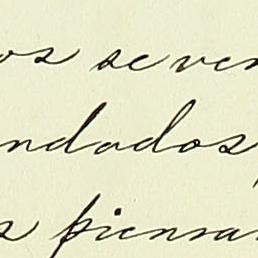 os se ven
ndados,
s piensan